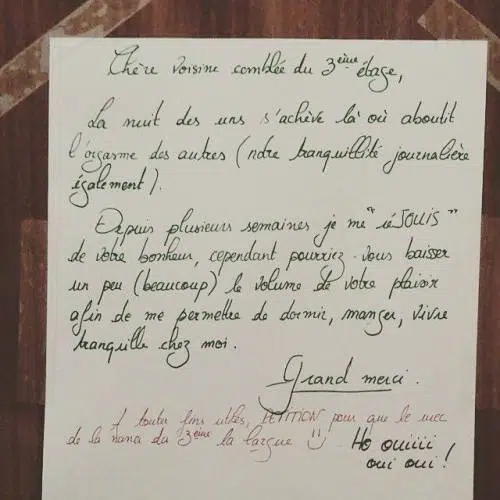 Chère voisine comblée du 3ème étage,
La nuit des uns s'achève là où aboutit
l'orgasme des autres (notre tranquillité journalière
également).
Depuis plusieurs semaines je me "réJOUIS"
de votre bonheur, cependant pourriez-vous baisser
un peu (beaucoup) le volume de votre plaisir
afin de me permettre de dormir, manger, vivre
tranquille chez moi.
Grand merci.
A toutes fins utiles, PETITION pour que le mec
de la nana du 3ème la largue
Ho ouiiii
oui oui !